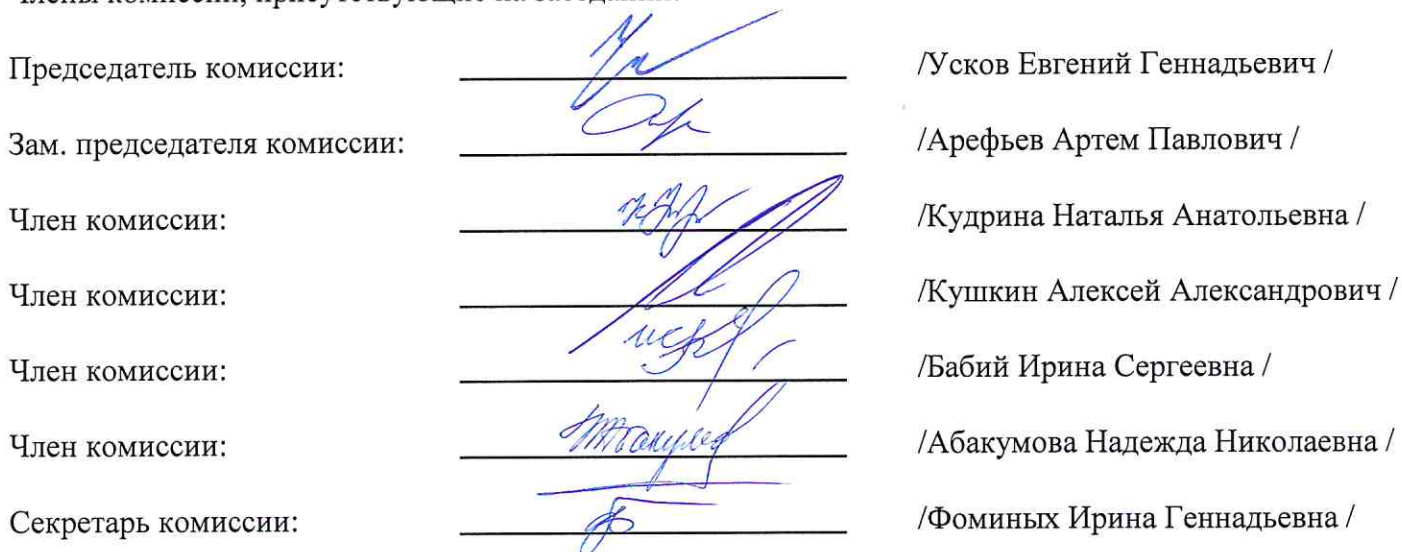 Члены комиссии, присутствующие на заседании:
Председатель комиссии: /Усков Евгений Геннадьевич /
Зам. председателя комиссии: /Арефьев Артем Павлович /
Член комиссии: /Кудрина Наталья Анатольевна /
Член комиссии: /Кушкин Алексей Александрович /
Член комиссии: /Бабий Ирина Сергеевна /
Член комиссии: /Абакумова Надежда Николаевна /
Секретарь комиссии: /Фоминых Ирина Геннадьевна /